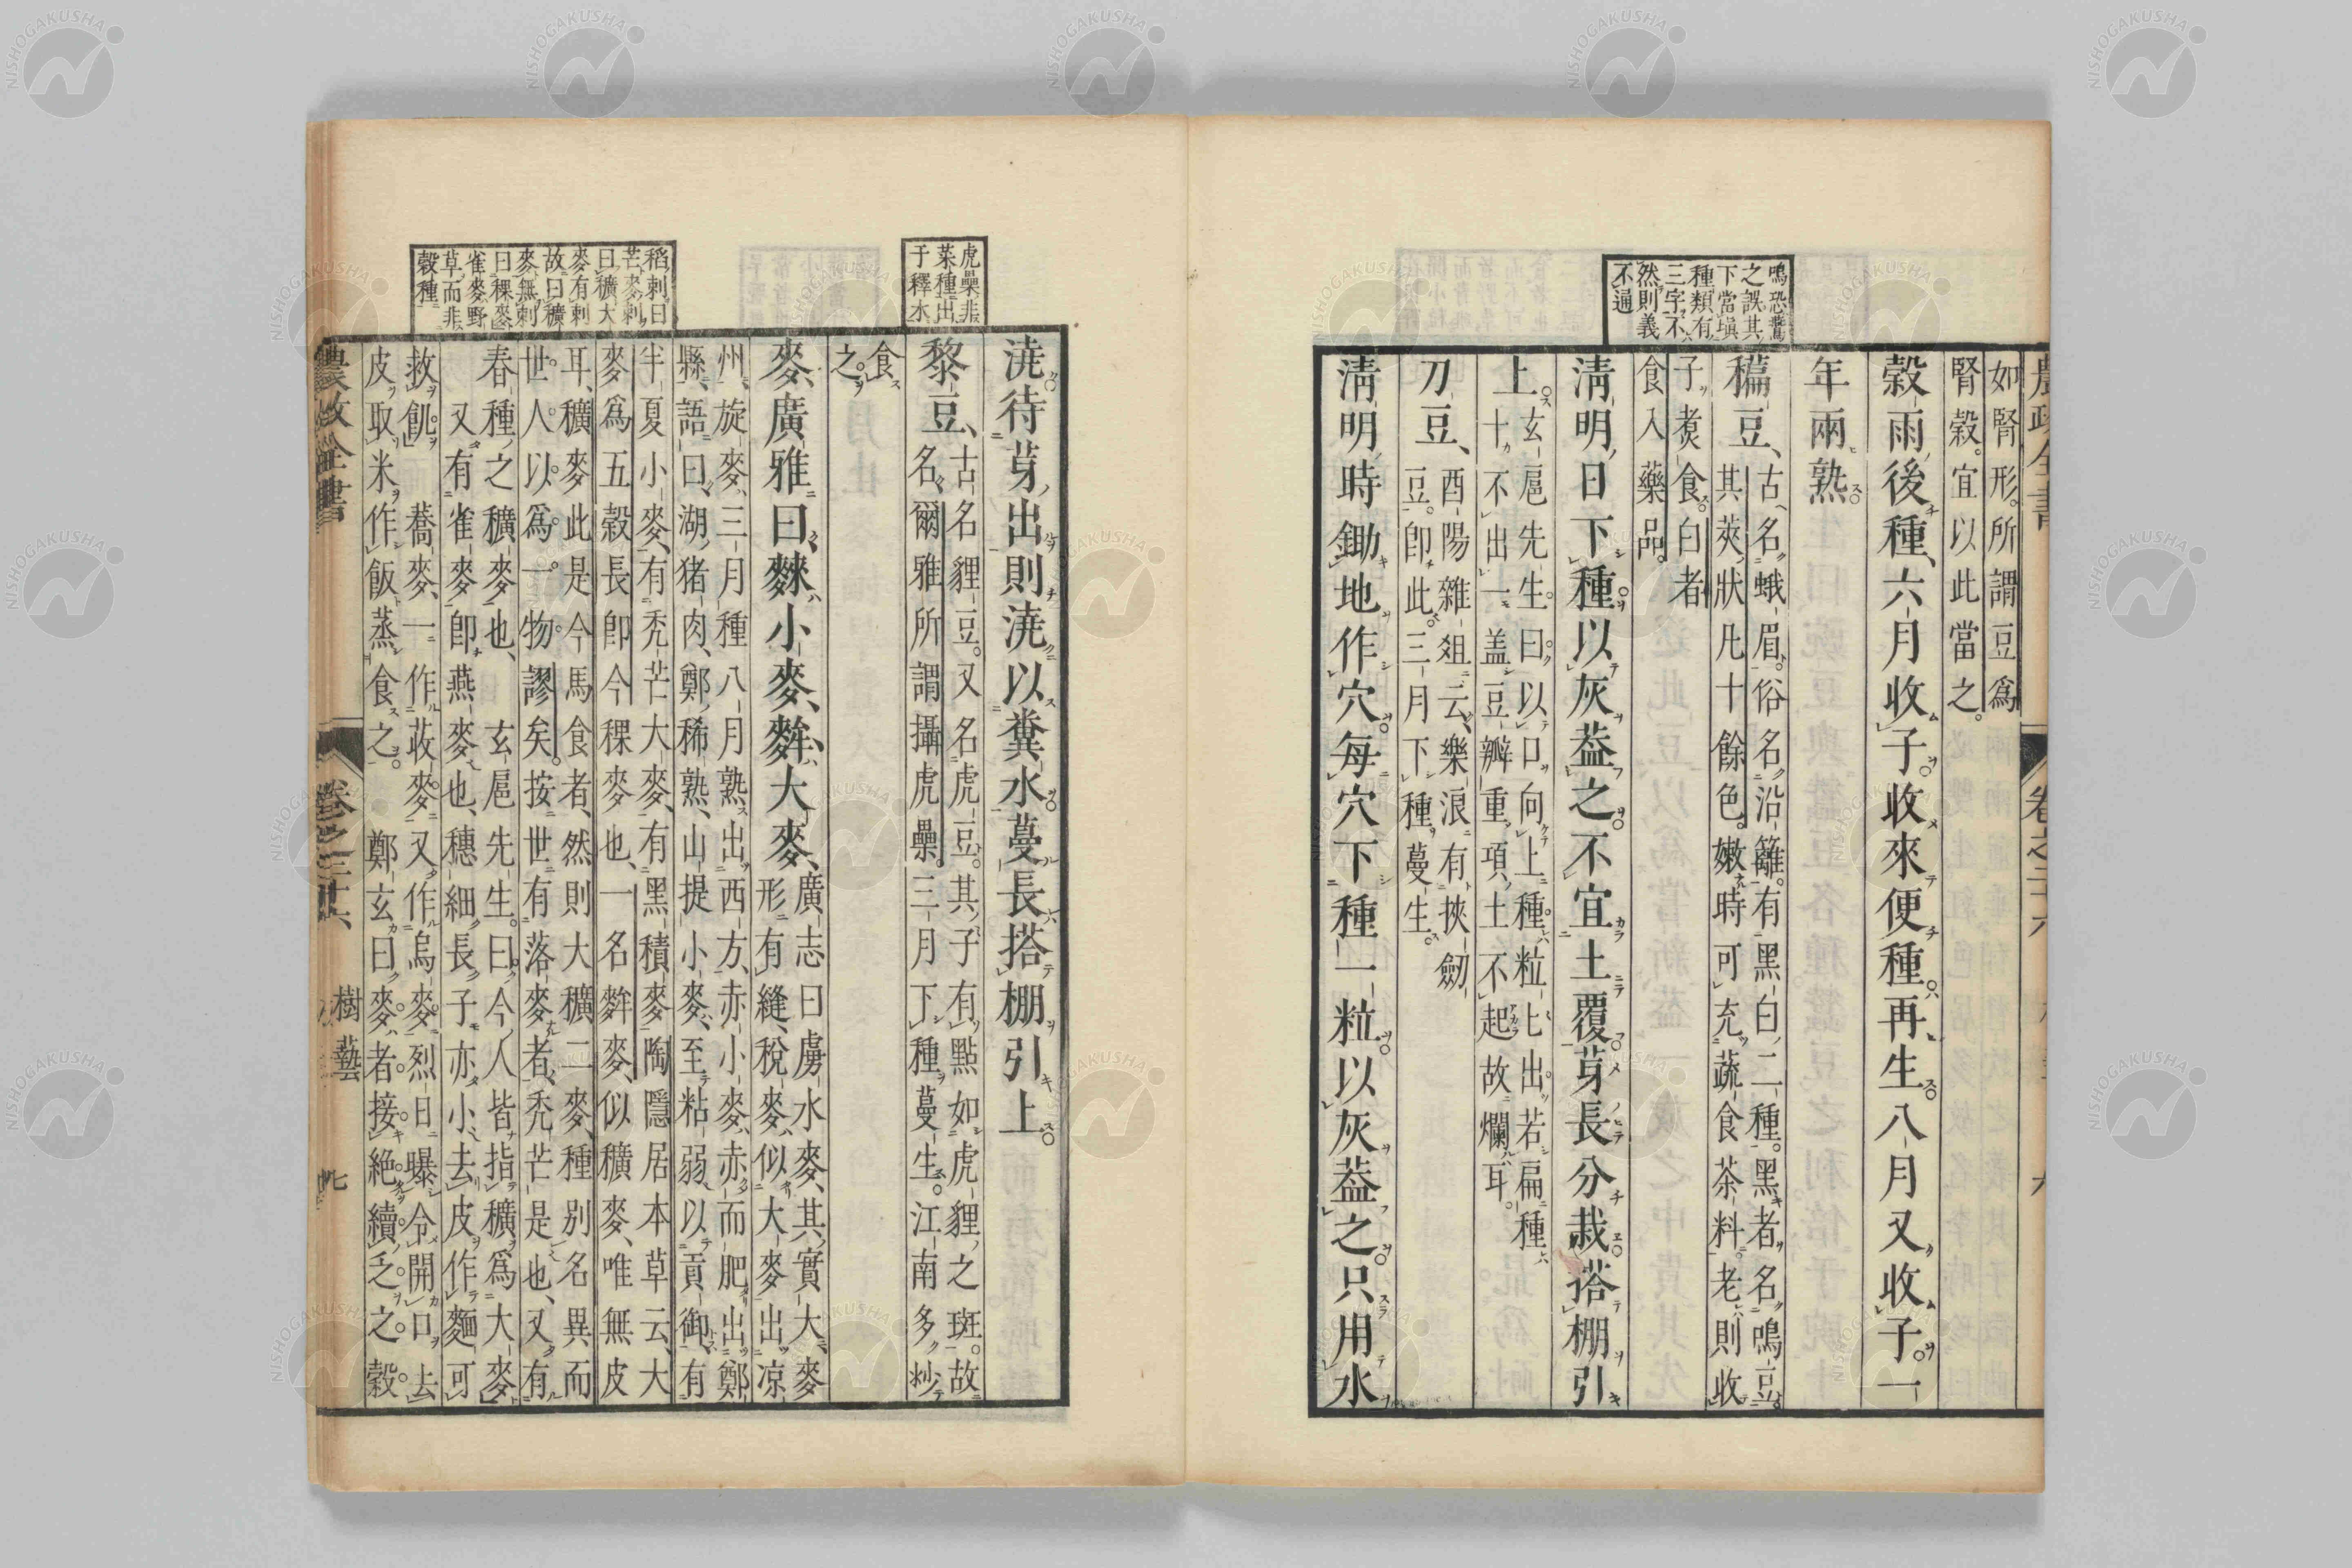 鳴恐鵲
之誤其
下當塡
種類有
三字不
然則義
不通
如腎形。所謂豆爲
腎穀。宜以此當之。
穀雨後種、六月收子。收來便種。再生。八月又收子。一
年兩熟。
稨豆、古名蛾眉。俗名沿籬。有黑白二種。黑者名鳴豆。
其莢狀凡十餘色。嫩時可充蔬食茶料。老則收
子煮食。白者
食入藥品。
清明日下種。以灰葢之。不宜土覆。芽長分栽。搭棚引
上。玄扈先生曰。以口向上種。粒粒出。若扁種
十不出一。盖豆瓣重。項土不起。故爛耳。
刀豆、酉陽雜俎云、樂浪有挾劒
豆。卽此。三月下種蔓生。
清明時鋤地作穴。每穴下種一粒。以灰葢之。只用水
虎櫐非
菜種出
于釋水
稻刺曰
芒麥刺
曰穬大
麥有刺
故曰穬
麥無刺
曰稞麥
雀麥野
草而非
穀種
澆。待芽出則澆以糞水。蔓長搭棚引上。
黎豆、古名貍豆。又名虎豆。其子有點如虎貍之斑。故
名爾雅所謂攝虎櫐。三月下種蔓生。江南多炒
食
之。
麥、廣雅曰、麳小麥、麰大麥、廣志曰虜水麥、其實大、麥
形有縫、稅麥、似大麥出凉
州、旋麥、三月種八月熟、出西方、赤小麥、赤而肥出鄭
縣、語曰、湖猪肉、鄭稀熟、山提小麥、至粘弱、以貢御、有
半夏小麥、有禿芒大麥、有黑積麥、陶隱居本草云、大
麥爲五穀長卽今稞麥也、一名麰麥、似穬麥、唯無皮
耳、穬麥此是今馬食者、然則大穬二麥、種别名異而
世人以爲一物。謬矣。按世有落麥者、禿芒是也、又有
春種之穬麥也、玄扈先生曰。今人皆指穬爲大麥
又有雀麥、卽燕麥也、穗細長子亦小、去皮作麵可
救飢。蕎麥、一作荍麥。又作烏麥。烈日曝令開口去
皮取米作飯蒸食之。鄭玄曰麥者接絶續乏之穀。
農政全書　卷之二十六　樹藝　七